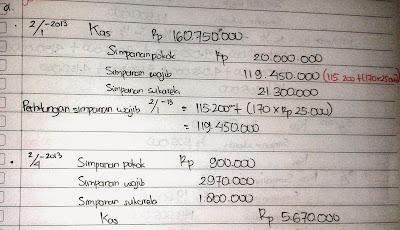 a.
• 2/1-2013 Kas Rp 160.750.000
Simpanan pokok Rp 20.000.000
Simpanan wajib 119.450.000 (115.200+(170×25.000)
Simpanan sukarela 21.300.000
Perhitungan simpanan wajib 2/1-13 = 115.200+ (170 × Rp 25.000)
= 119.450.000
• 2/4-2013 Simpanan pokok Rp 900.000
Simpanan wajib 2.970.000
Simpanan sukarela 1.800.000
Kas Rp 5.670.000